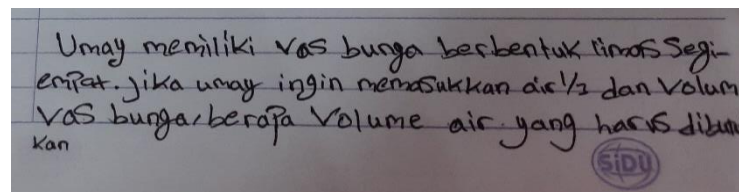 Umay memiliki vas bunga berbentuk limas segi-
empat. jika umay ingin memasukkan air 1/2 dan volum
vas bunga, berapa volume air yang harus dibutu
kan
SiDU